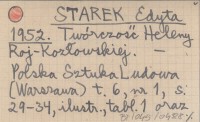 STAREK Edyta
1952. Twórczość Heleny
Roj-Kozłowskiej. —
Polska Sztuka Ludowa
(Warszawa) t. 6, nr 1, s.
29-34, ilustr., tabl. 1 oraz